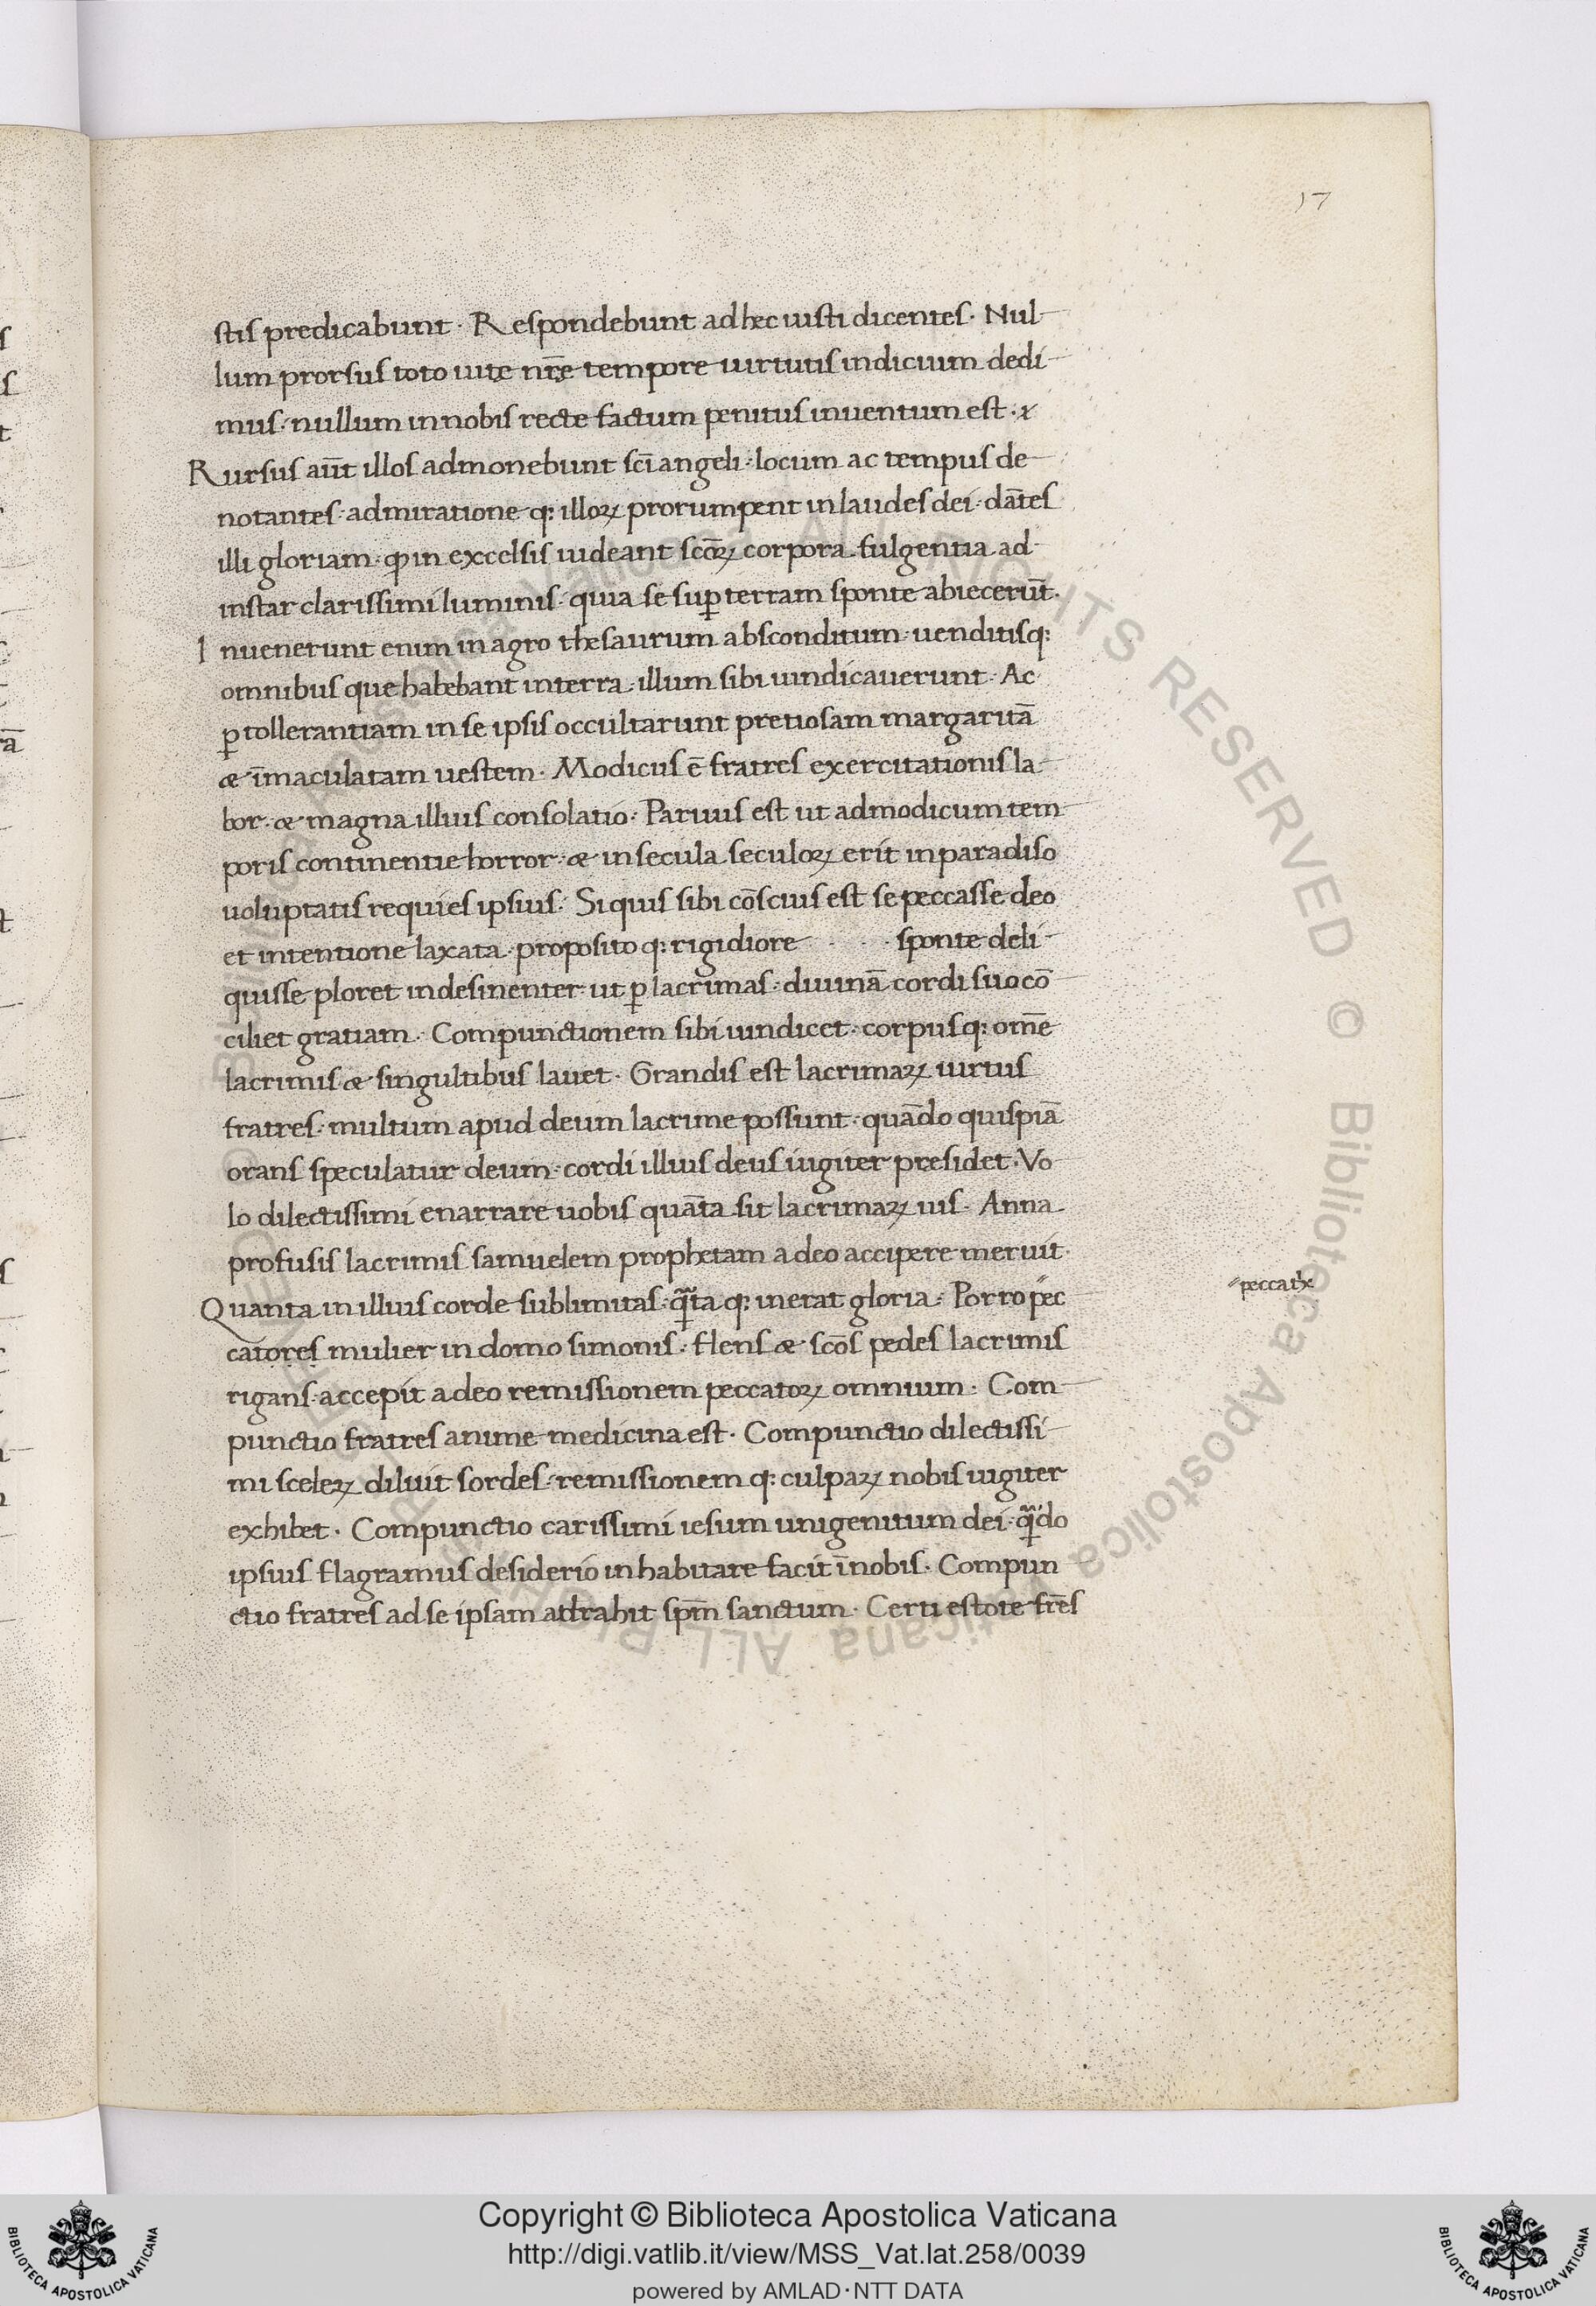 17
stis predicabunt · Respondebunt ad hec iusti dicentes · Nul
lum prorsus toto uite nr̄e tempore uirtutis indicium dedi
mus · nullum in nobis recte factum penitus inuentum est ·
Rursus aūt illos admonebunt sc̄i angeli · locum ac tempus de
notantes · admiratione q; illoꝝ prorumpent in laudes dei · dātes
illi gloriam · ꝙ in excelsis uideant sc̄oꝝ corpora fulgentia ad
instar clarissimi luminis · quia se suꝑ terram sponte abiecerūt ·
Inuenerunt enim in agro thesaurum absconditum · uenditisq;
omnibus que habebant in terra · illum sibi uindicauerunt · Ac
ꝑ tollerantiam in se ipsis occultarunt pretiosam margaritā
& īmaculatam uestem · Modicus ē fratres exercitationis la
bor · & magna illius consolatio · Paruus est ut ad modicum tem
poris continentie horror · & in secula seculoꝝ erit in paradiso
uoluptatis requies ipsius · Si quis sibi cōscius est se peccasse deo
et intentione laxata · proposito q; rigidiore · · · sponte deli
quisse ploret indesinenter · ut ꝑ lacrimas · diuinā cordi suo cō
ciliet gratiam · Compunctionem sibi uindicet · corpusq; om̄e
lacrimis & singultibus lauet · Grandis est lacrimaꝝ uirtus
fratres · multum apud deum lacrime possunt · quādo quispiā
orans speculatur deum · cordi illius deus iugiter presidet · Vo
lo dilectissimi enarrare uobis quāta sit lacrimaꝝ uis · Anna
profusis lacrimis samuelem prophetam a deo accipere meruit ·
Quanta in illius corde sublimitas · qᷓta q; inerat gloria · Porro pec
catores mulier in domo simonis · flens & sc̄os pedes lacrimis
rigans · accepit a deo remissionem peccatoꝝ omnium · Com
punctio fratres anime medicina est · Compunctio dilectissi
mi sceleꝝ diluit sordes · remissionem q; culpaꝝ nobis iugiter
exhibet · Compunctio carissimi iesum unigenitum dei · qᷓdo
ipsius flagramus desiderio inhabitare facit ī nobis · Compun
ctio fratres ad se ipsam attrahit sp̄m sanctum · Certi estote fr̄es
Copyright © Biblioteca Apostolica Vaticana
http://digi.vatlib.it/view/MSS_Vat.lat.258/0039
powered by AMLAD · NTT DATA